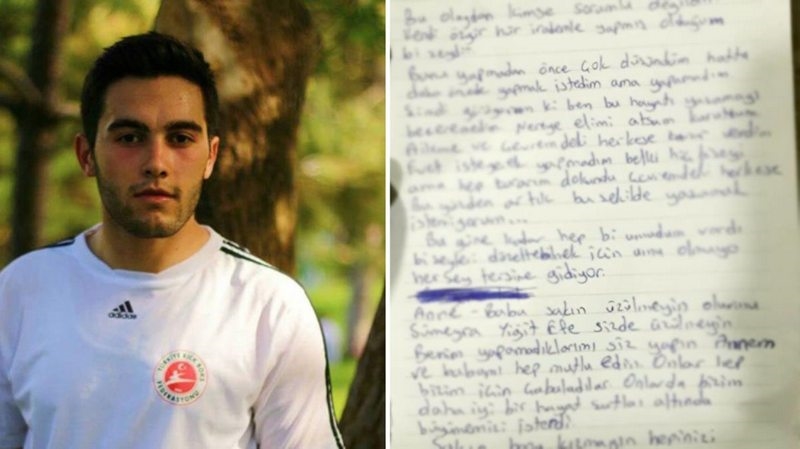 adidas
TÜRKİYE KICK BOKS
FEDERASYONU
Bu olaydan kimse sorumlu değildir
Kendi özgür hür irademle yapmış olduğum
bi şeydi
Bunu yapmadan önce çok düşündüm hatta
daha önce yapmak istedim ama yapamadım
Şimdi görüyorum ki ben bu hayatı yaşamayı
beceremedim Nereye elimi atsam kuruttum
Aileme ve Çevremdeki herkese zarar verdim
Evet isteyerek yapmadım belki hiç bişeyi
ama hep zararım dokundu Çevremdeki herkese
Bu yüzden artık bu şekilde yaşamak
istemiyorum...
Bu güne kadar hep bi umudum vardı
bişeyleri düzeltebilmek için ama olmuyo
her şey tersine gidiyor.
Anne - Baba sakın üzülmeyin olurmu
Sümeyra Yiğit Efe sizde üzülmeyin
Benim yapamadıklarımı siz yapın Annem
ve babamı hep mutlu edin Onlar hep
bizim için Çabaladılar Onlarda bizim
daha iyi bir hayat şartları altında
büyümemizi istendi
Sakın bana kızmayın hepinizi